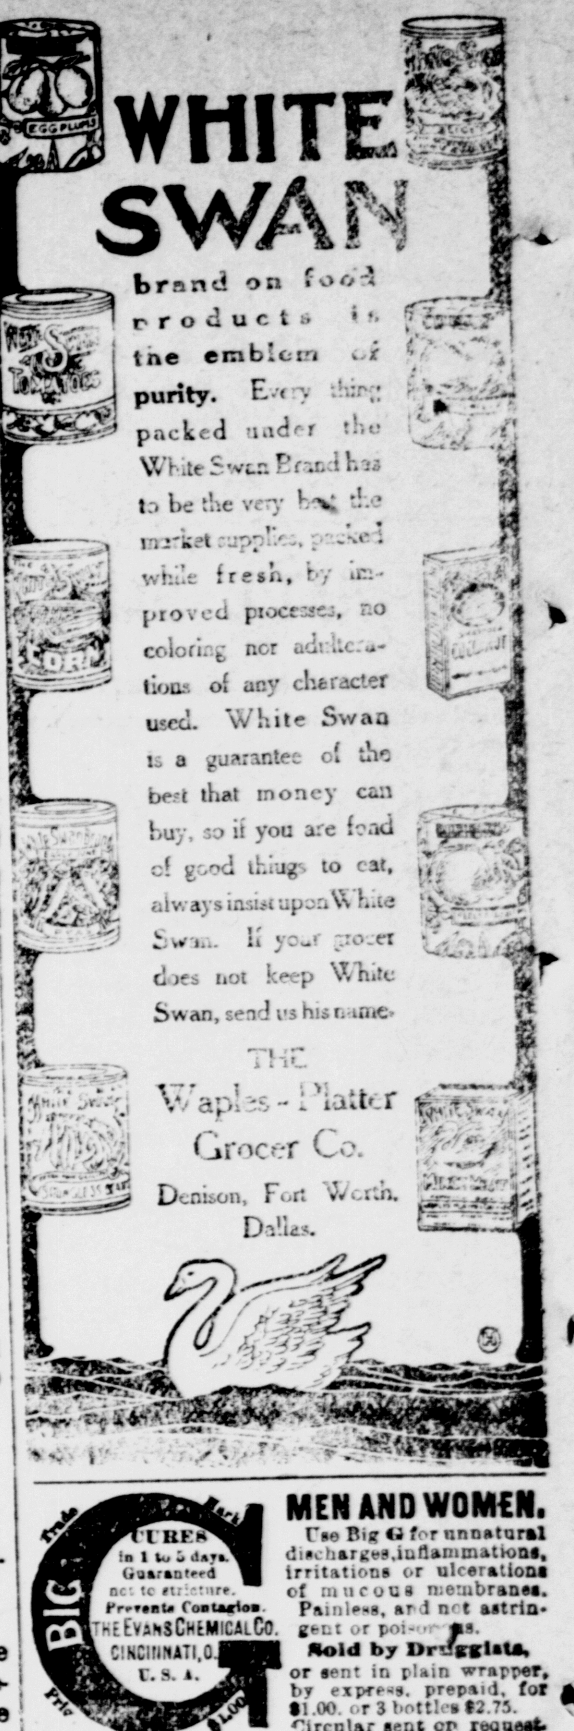 WHITE
SWAN
brand on food
products is
the emblem of
purity. Every thing
packed under the
White Swan Brand has
to be the very best the
market supplies, packed
while fresh, by im-
proved processes, no
coloring nor adultera-
tions of any character
used. White Swan
is a guarantee of the
best that money can
buy, so if you are fond
of good things to eat,
always insist upon White
Swan. If your grocer
does not keep White
Swan, send us his name.
THE
Waples-Platter
Grocer Co.
Denison, Fort Worth,
Dallas.
EGG PLUMS
TOMATOES
CORN
COCOANUT
BIG G
Trade Mark
CURES
in 1 to 5 days.
Guaranteed
not to stricture.
Prevents Contagion.
THE EVANS CHEMICAL CO.
CINCINNATI, O.
U. S. A.
$1.00
MEN AND WOMEN.
Use Big G for unnatural
discharges, inflammations,
irritations or ulcerations
of mucous membranes.
Painless, and not astrin-
gent or poisonous.
Sold by Druggists,
or sent in plain wrapper,
by express, prepaid, for
$1.00. or 3 bottles $2.75.
Circular sent on request.